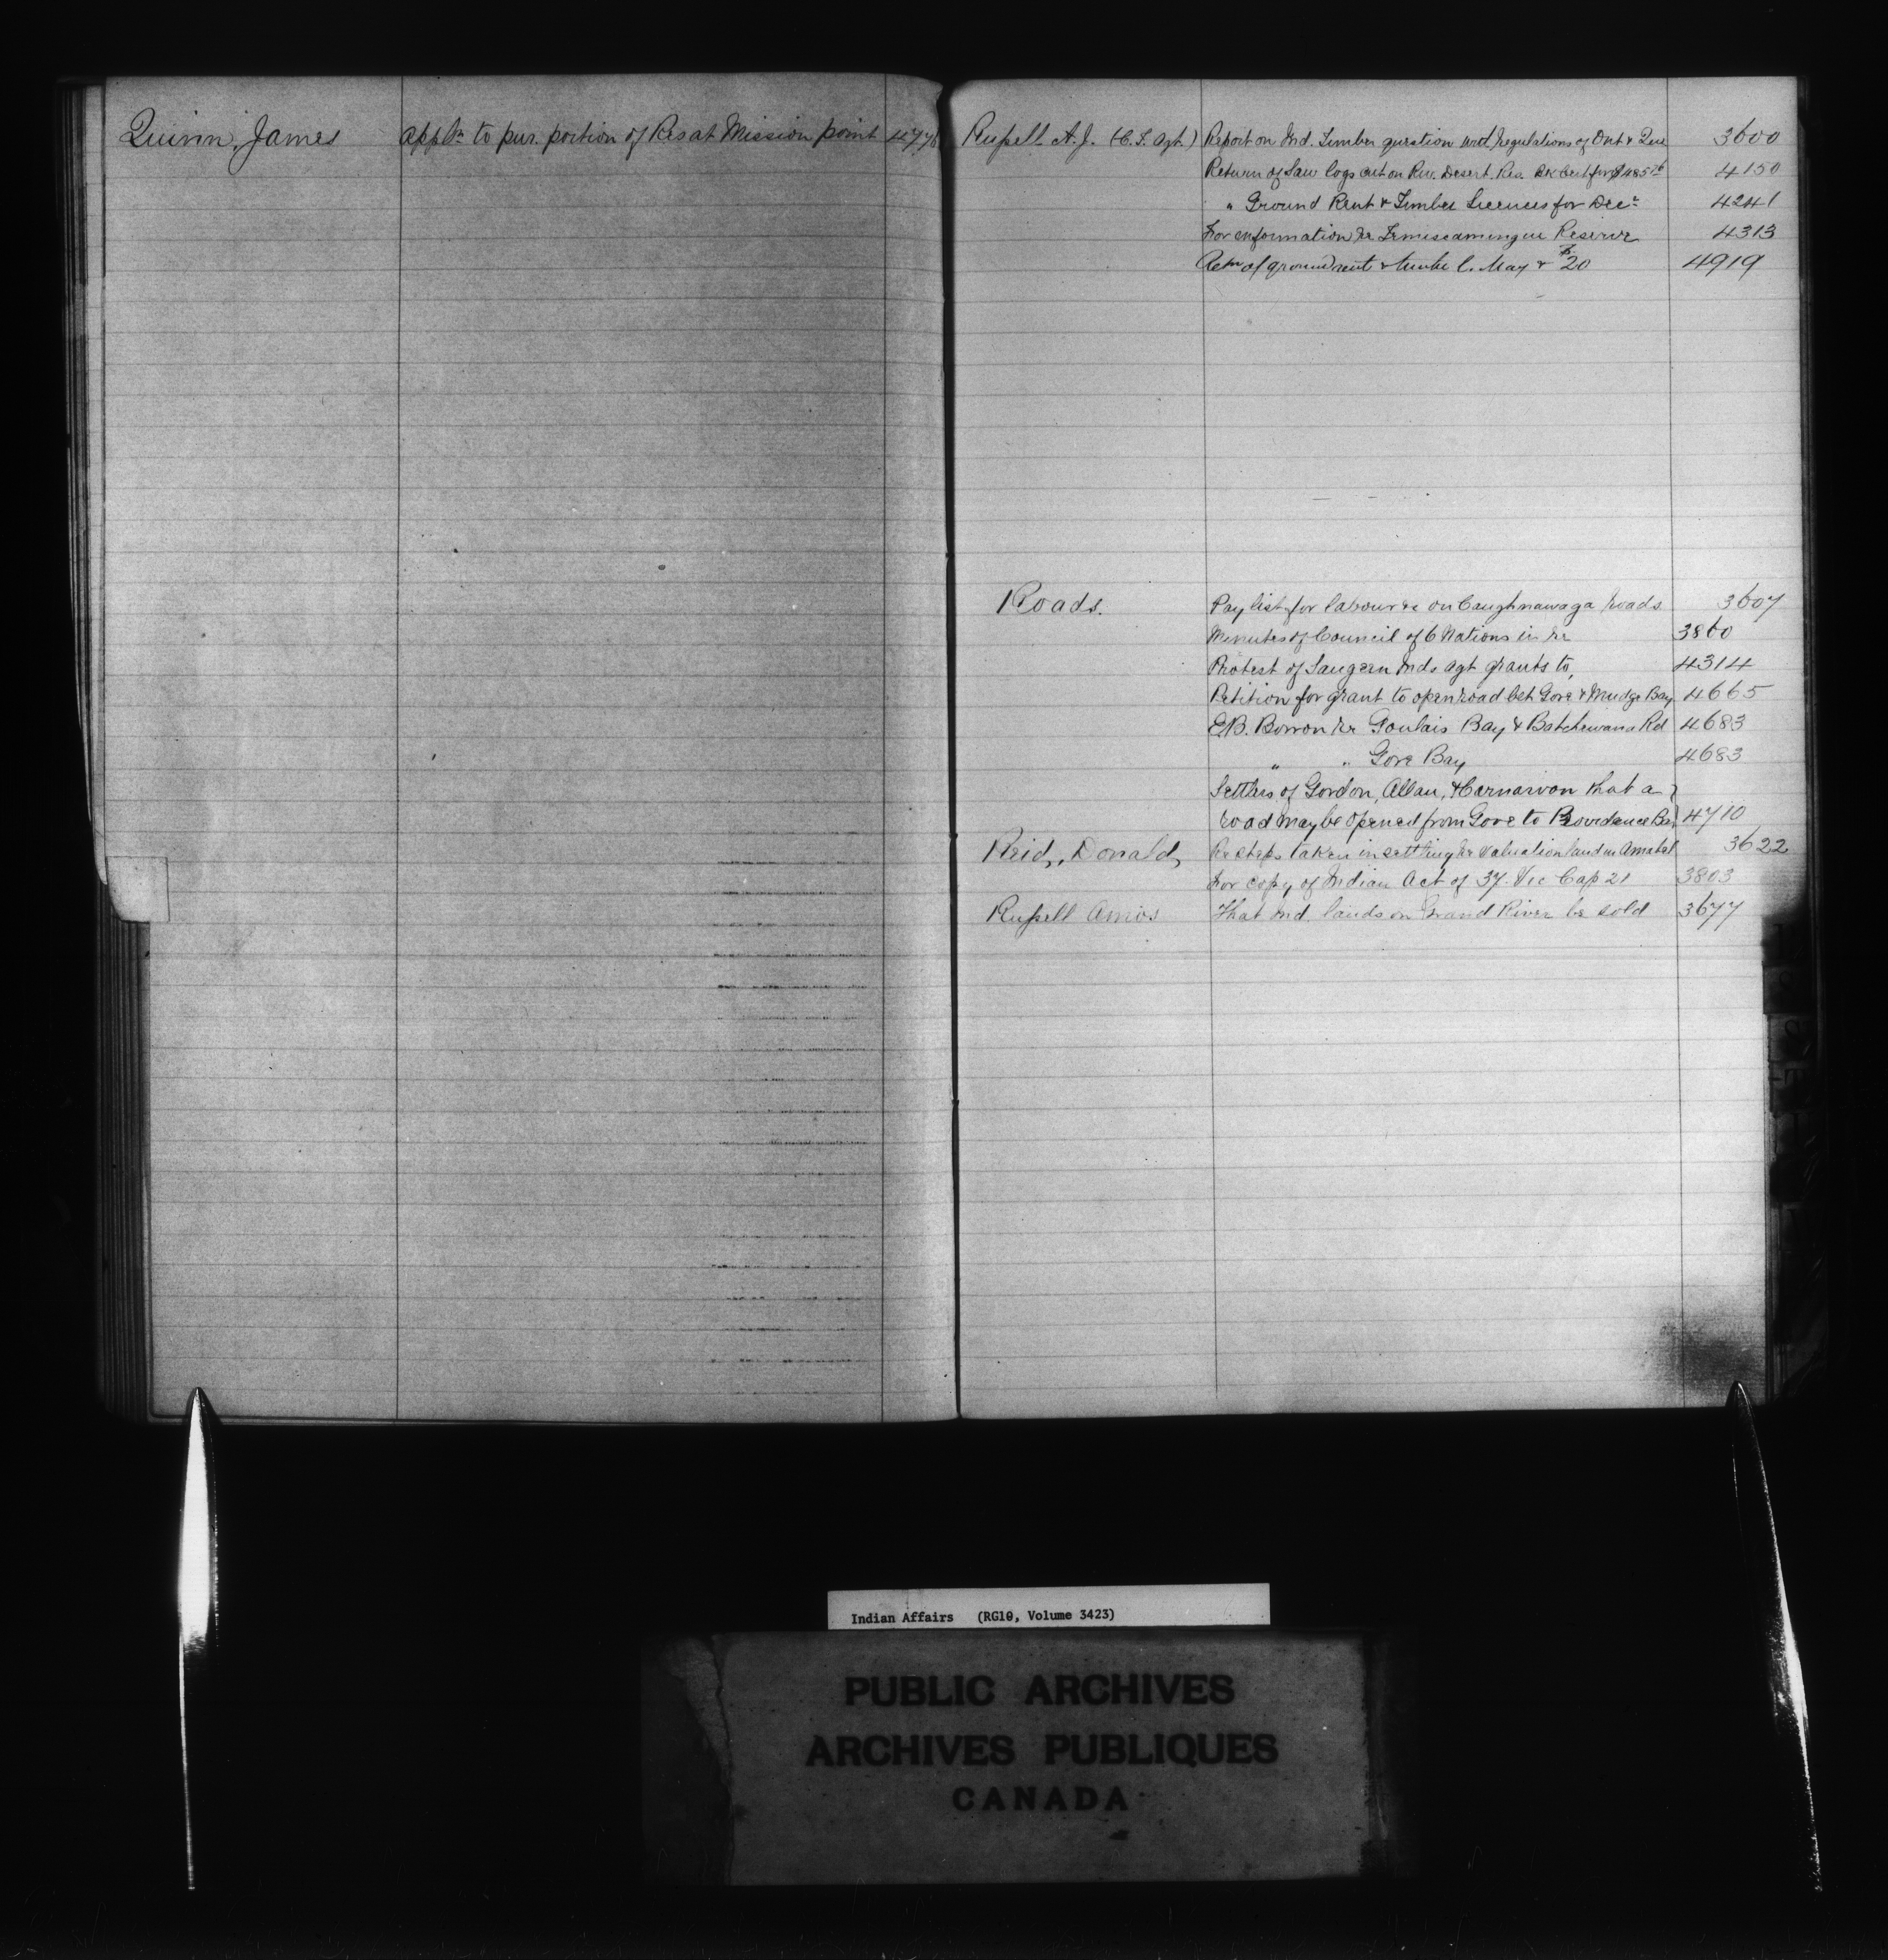 Quinn, James appltn to pur. portion of Res at Mission point 4778
Russell A.J. (C.T. Agt.) Report on Ind. Timber question with regulations of Ont & Que 3600
Return of Saw logs cut on Riv. Desert. Res. 4150
" Ground Rent & Timber Licences for Decr 4241
For information re Temiscamingue Reserve 4313
Retn of ground rent & timber l. May & 20 4919
Roads. Pay list for labour &c on Caughnawaga roads 3607
Minutes of Council of 6 Nations in re 3860
Protest of Saugeen Inds agt grants to, 4314
Petition for grant to open road bet Gore & Mudge Bay 4665
E.B. Borron re Goulais Bay & Batchewana Rd 4683
" " Gore Bay 4683
Settlers of Gordon, Allan, & Carnarvon that a
road may be opened from Gore to Providence Bay 4710
Reid, Donald, Re steps taken in settling re valuation land in Amabel 3622
For copy of Indian Act of 37. Vic Cap 21 3803
Russell Amos That Ind. lands on Grand River be sold 3677
Indian Affairs (RG10, Volume 3423)
PUBLIC ARCHIVES
ARCHIVES PUBLIQUES
CANADA